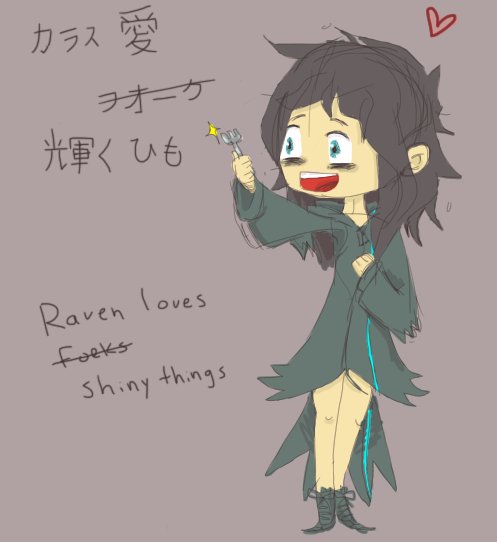 カラス 愛
ヲオーケ
輝く ひも
Raven loves
Foeks
shiny things